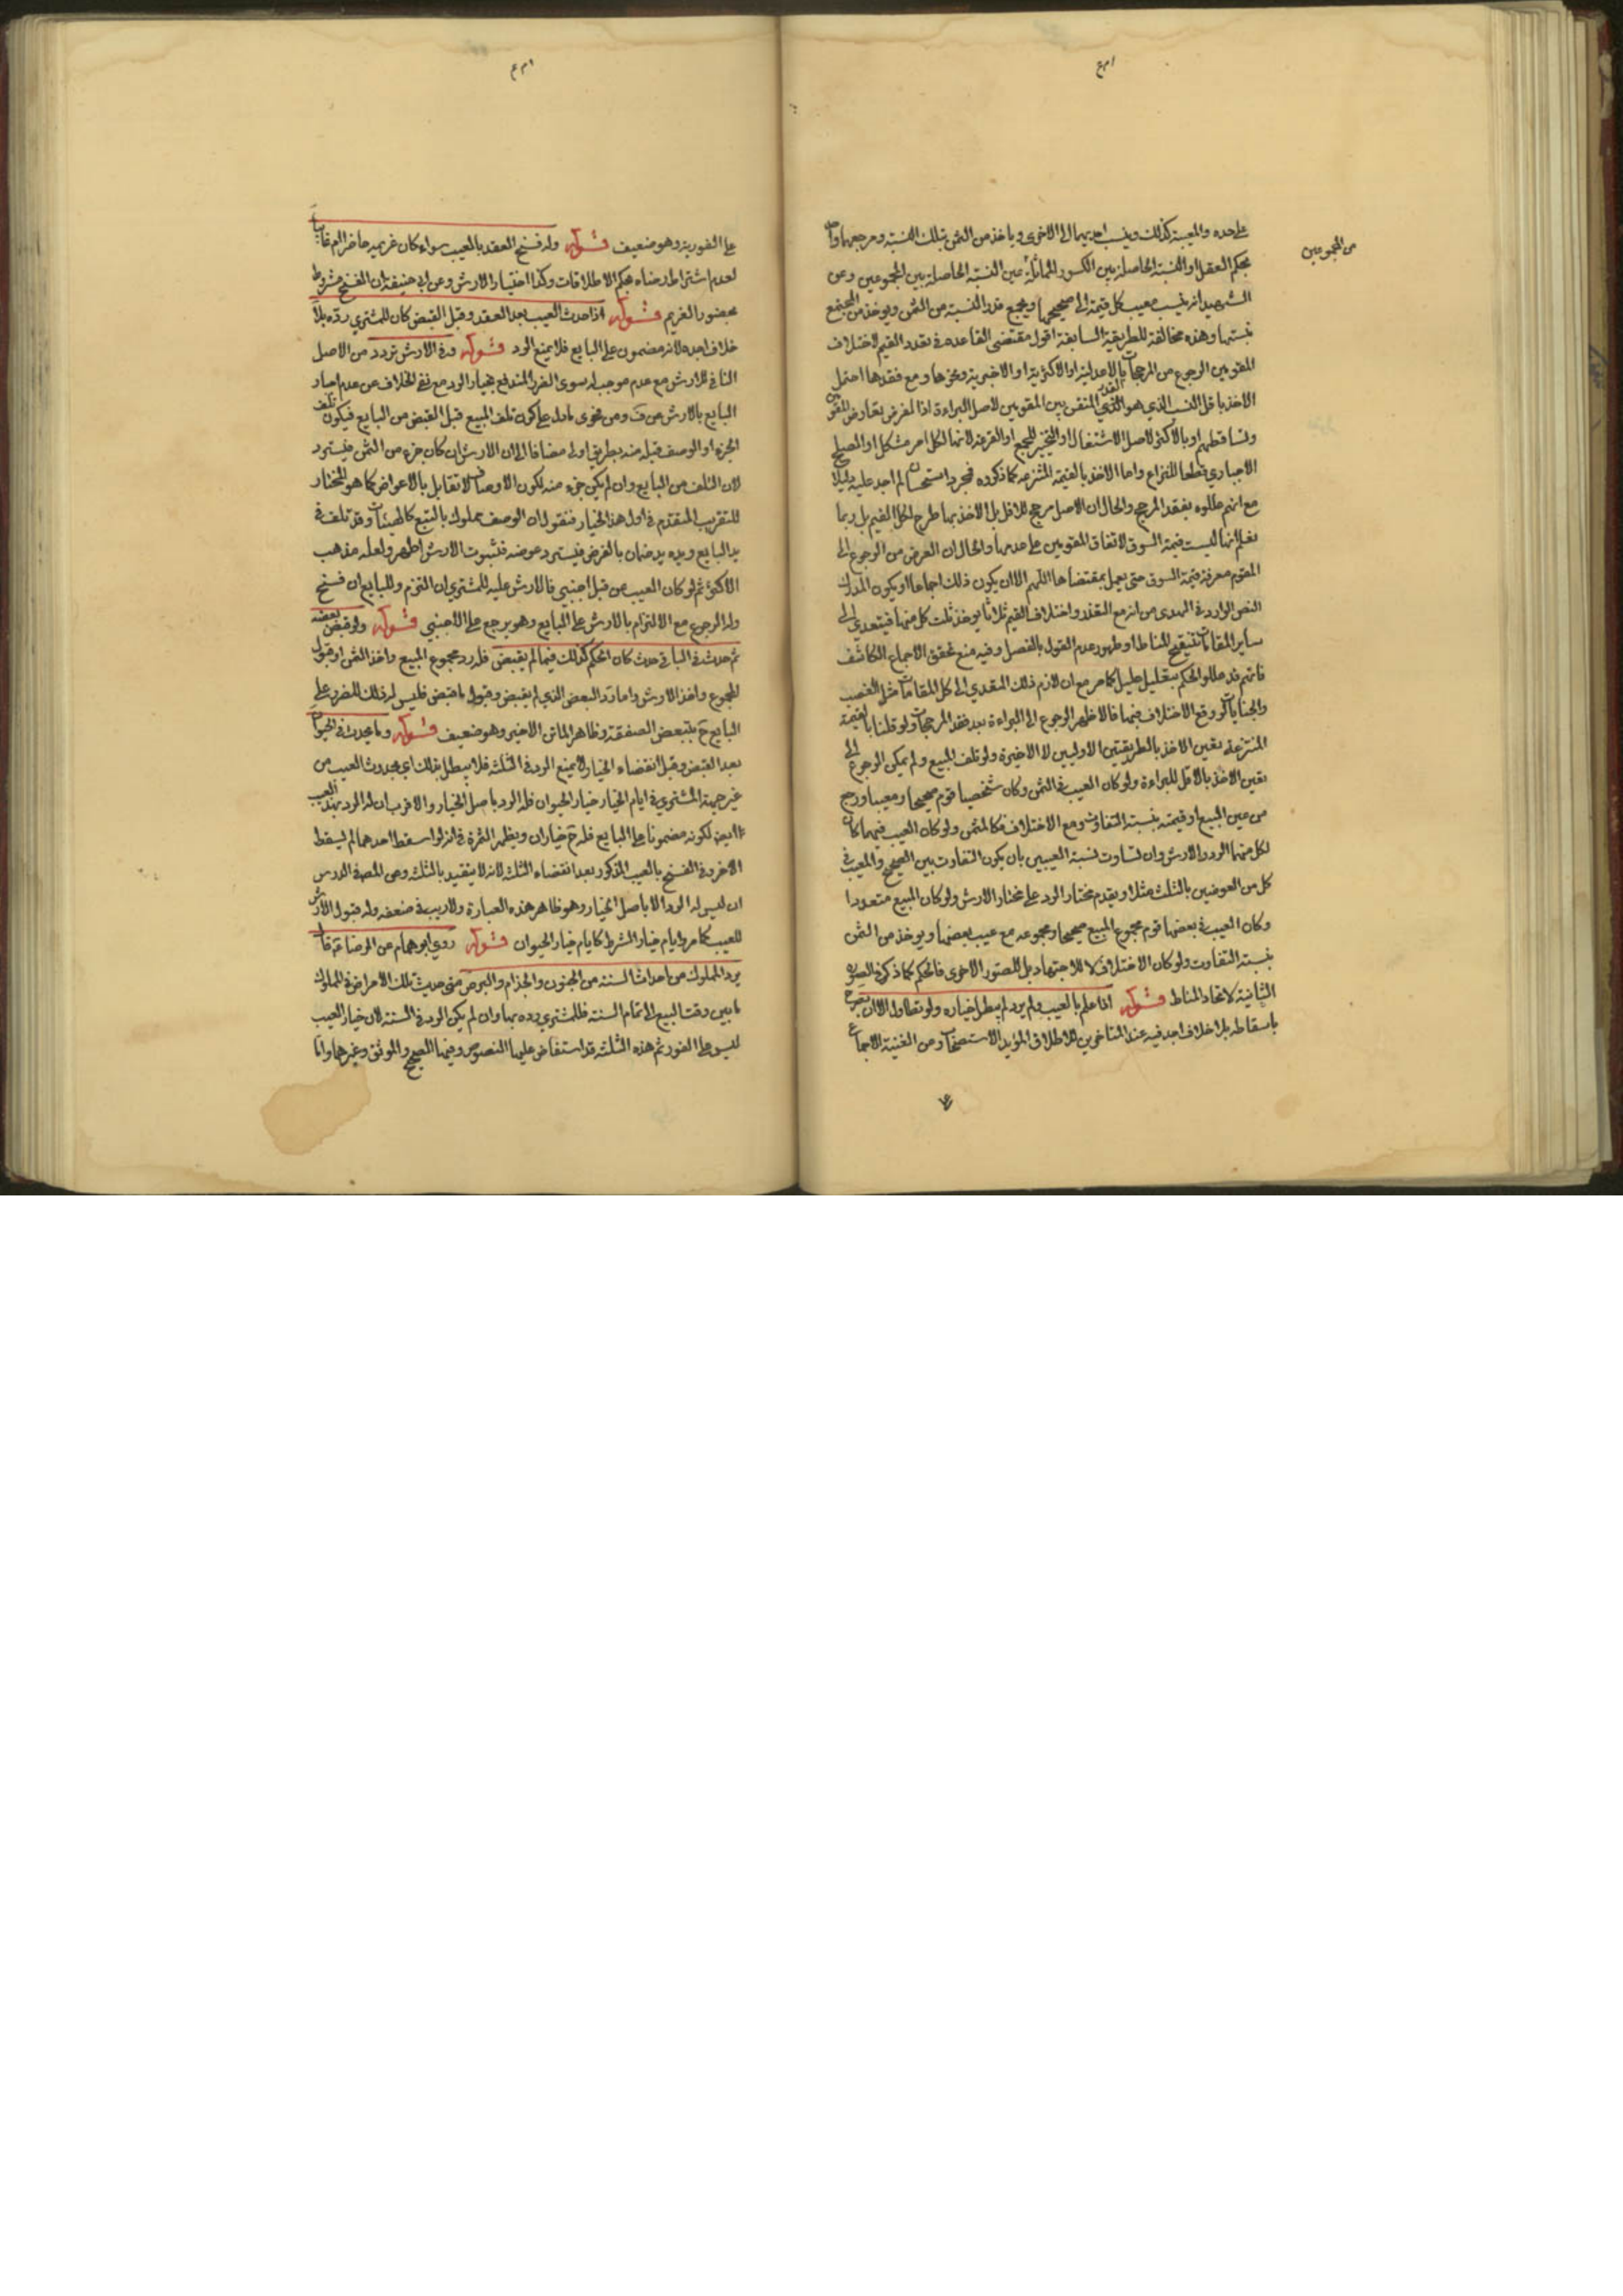 على حده والمعيبة كذلك وينسب احديهما الى الاخرى وياخذ من الثمن بتلك النسبة ومرجعهما واحد
بحكم العقل اذ النسبة الحاصلة بين الكسور المماثلة عين النسبة الحاصلة بين المجموعين وعن
من المجموعين
الشهيد انه ينسب معيب كل قيمة الى صحيحها ويجمع قدر النسبة من الثمن ويوخذ من المجتمع
بنسبتها وهذه مخالفة للطريقة السابقة اقول مقتضى القاعده في تعدد القيم لاختلاف
المقومين الرجوع من المرجحات بالاعدلية او الاكثرية او الاخبرية ونحوها ومع فقدها احتمل
الاخذ باقل النسب الذي هو القدر المتقن بين المقومين لاصل البراءة اذا لفرض تعارض المقومين
وتساقطهم او بالاكثر لاصل الاشتغال او التخيير للجمع او القرعة لانها لكل امر مشكل او الصلح
الاجباري قطعا للنزاع واما الاخذ بالقيمة المنتزعه كما ذكروه فمجرد استحسان لم اجد عليه دليلا
مع انهم عللوه بفقد المرجح والحال ان الاصل مرجح للاقل بل الاخذ بها طرح لكل القيم بل ربما
نعلم انها ليست قيمة السوق لاتفاق المقومين على عدمها والحال ان الغرض من الرجوع الى
المقوم معرفة قيمة السوق حتى يعمل بمقتضاها اللهم الا ان يكون ذلك اجماعا او يكون المدرك
النص الوارد في الهدى من انه مع التعذر واختلاف القيم ثلاثا يوخذ ثلث كل منها فيتعدى الى
ساير المقامات لتنقيح المناط او ظهور عدم القول بالفصل وفيه منع تحقق الاجماع الكاشف
فانهم قد عللوا الحكم بتعليل عليل كما مر مع ان لازم ذلك التعدي الى كل المقامات مثل الغصب
والجنايات لو وقع الاختلاف فيها فالاظهر الرجوع الى البراءة بعد فقد المرجحات ولو قلنا بالقيمة
المنتزعة تعين الاخذ بالطريقتين الاوليين لا الاخيرة ولو تلف المبيع ولم يمكن الرجوع الى
تعين الاخذ بالاقل للبراءة ولو كان العيب في الثمن وكان شخصيا قوم صحيحا ومعيبا ورجع
من عين المبيع او قيمته بنسبة التفاوت ومع الاختلاف فكالمثمن ولو كان العيب فيهما كان
لكل منهما الرد والارش وان تساوت نسبة العيبين بان يكون التفاوت بين الصحيح والمعيب في
كل من العوضين بالثلث مثلا ويقدم مختار الرد على مختار الارش ولو كان المبيع متعددا
وكان العيب في بعضها قوم مجموع المبيع صحيحا ومجموعه مع عيب بعضها ويوخذ من الثمن
بنسبة التفاوت ولو كان الاختلاف لا للاجتهاد بل للصور الاخرى فالحكم كما ذكر في الصورة
الثانية لاتحاد المناط قوله اذا علم بالعيب ولم يرد لم يبطل خياره ولو تطاول الا ان يصرح
باسقاطه بلا خلاف اجد فيه عند المتاخرين للاطلاق المؤيد الاستصحاب ومن الغنية الاجماع
على الفورية وهو ضعيف قوله وله فسخ العقد بالعيب سواء كان غريمه حاضرا ام غايبا
لعدم اشتراط رضاه بحكم الاطلاقات وكذا اختيار الارش وعن ابي حنيفة ان الفسخ مشروط
بحضور الغريم قوله اذا حدث العيب بعد العقد وقبل القبض كان للمشتري رده بلا
خلاف اجده لانه مضمون على البايع فلا يمنع الرد قوله وفي الارش تردد من الاصل
النافي للارش مع عدم موجب له سوى الضرر المندفع بخيار الرد مع نفي الخلاف عن عدم اجبار
البايع بالارش عن ف ومن فحوى مادل على كون تلف المبيع قبل القبض من البايع فيكون تلف
الجزء او الوصف قبله منه بطريق اولى مضافا الى ان الارش ان كان جزء من الثمن فيسترد
لان التلف من البايع وان لم يكن جزء منه لكون الاوصاف لا تقابل بالاعواض كما هو المختار
للتقريب المتقدم في اول هذا الخيار فنقول ان الوصف مملوك بالتبع كالهيئات وقد تلف في
يد البايع ويده يد ضمان بالفرض فيسترد عوضه فثبوت الارش اظهر ولعله مذهب
الاكثر ثم لو كان العيب من قبل اجنبي فالارش عليه للمشتري ان التزم وللبايع ان فسخ
وله الرجوع مع الالتزام بالارش على البايع وهو يرجع على الاجنبي قوله ولو قبض بعضه
ثم حدث في الباقي حدث كان الحكم كذلك فيما لم يقبض فله رد مجموع المبيع واخذ الثمن او قبول
المجموع واخذ الارش واما رد البعض الذي لم يقبض وقبول ما قبض فليس له ذلك للضرر على
البايع ح بتبعض الصفقة وظاهر الماتن الاخير وهو ضعيف قوله وما يحدث في الحيوان
بعد القبض وقبل انقضاء الخيار لا يمنع الرد في الثلثة فلا يبطل بذلك اي بحدوث العيب من
غير جهة المشتري في ايام الخيار خيار الحيوان فله الرد باصل الخيار والاقرب ان له الرد بهذا العيب
ايض لكونه مضمونا على البايع فله ح خياران ويظهر الثمرة في انه لو اسقط احدهما لم يسقط
الاخر وفي الفسخ بالعيب المذكور بعد انقضاء الثلثة لانه لا يتقيد بالثلثة وعن المص في الدرس
ان ليس له الرد الا باصل الخيار وهو ظاهر هذه العبارة ولا ريب في ضعفه وله قبول الارش
للعيب كما مر وايام خيار الشرط كايام خيار الحيوان قوله روى ابو همام عن الرضا ع قال
يرد المملوك من احداث السنة من الجنون والجذام والبرص متى حديث تلك الامراض في المملوك
ما بين وقت البيع الى تمام السنة فللمشتري رده بها وان لم يكن الرد في السنة لان خيار العيب
ليس على الفور ثم هذه الثلثة قد استفاض عليها النصوص وفيها الصحيح والموثق وغيرهما واما